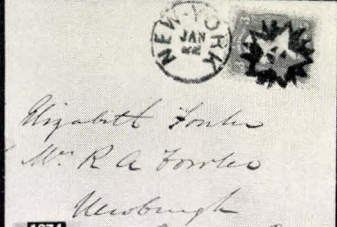 NEW-YORK
JAN
22
Elizabeth Fowler
Mrs R A Fowler
Newburgh
1074